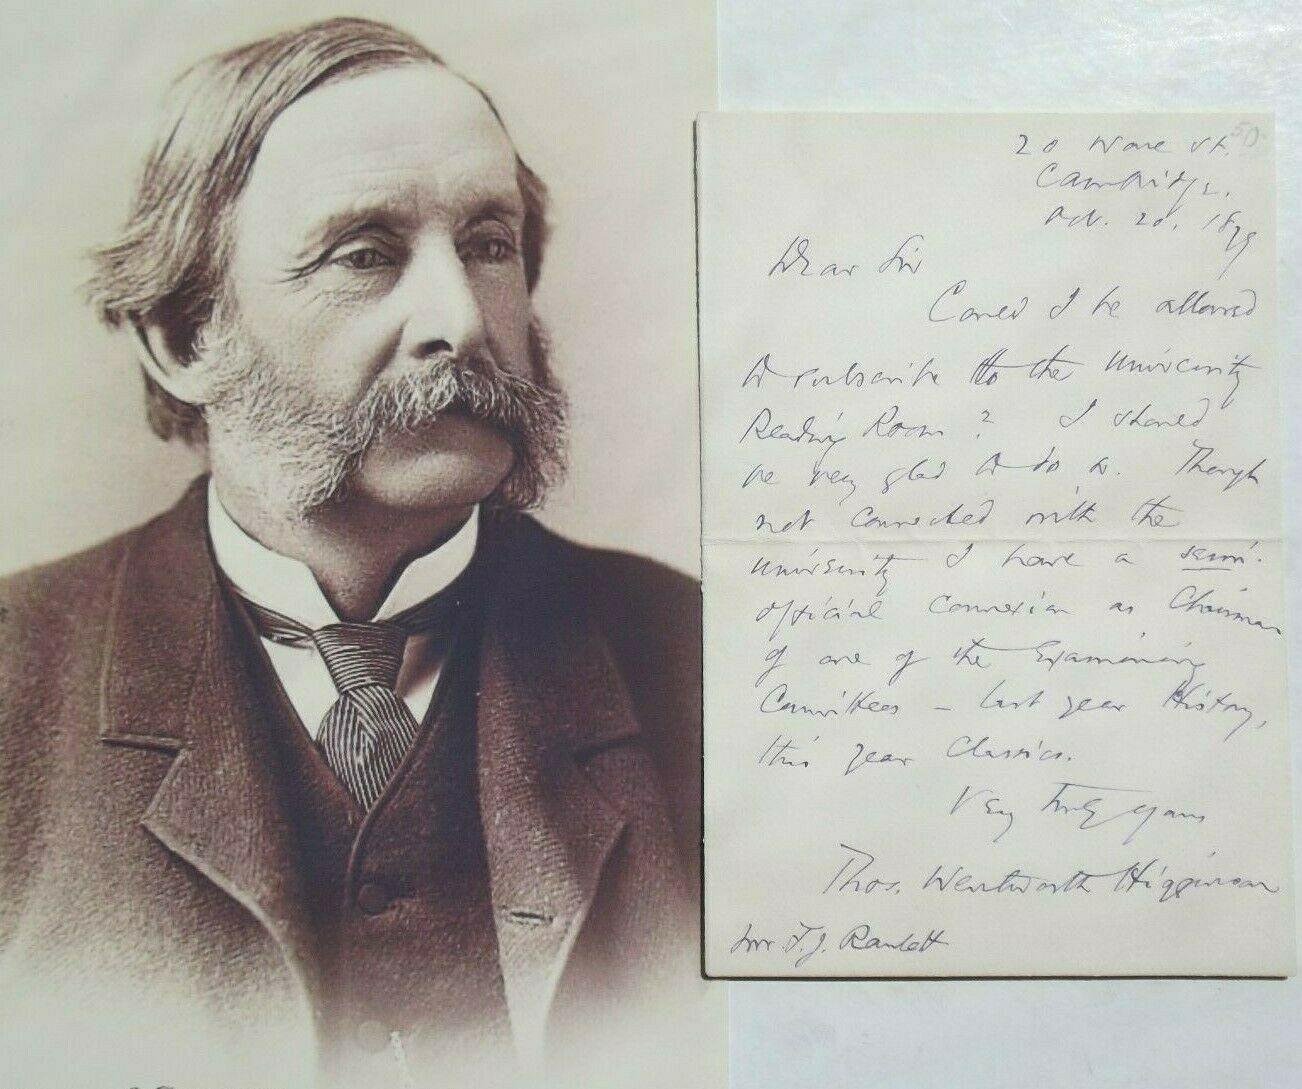 50
20 Ware St.
Cambridge.
Oct. 20, 1879
Dear Sir
Could I be allowed
to subscribe to the University
Reading Room? I should
be very glad to do so. Though
not connected with the
University I have a semi-
official connexion as Chairman
of one of the Examining
Committees – last year History,
this year Classics.
Very truly yours
Thos. Wentworth Higginson
Mr F. J. Ranlett